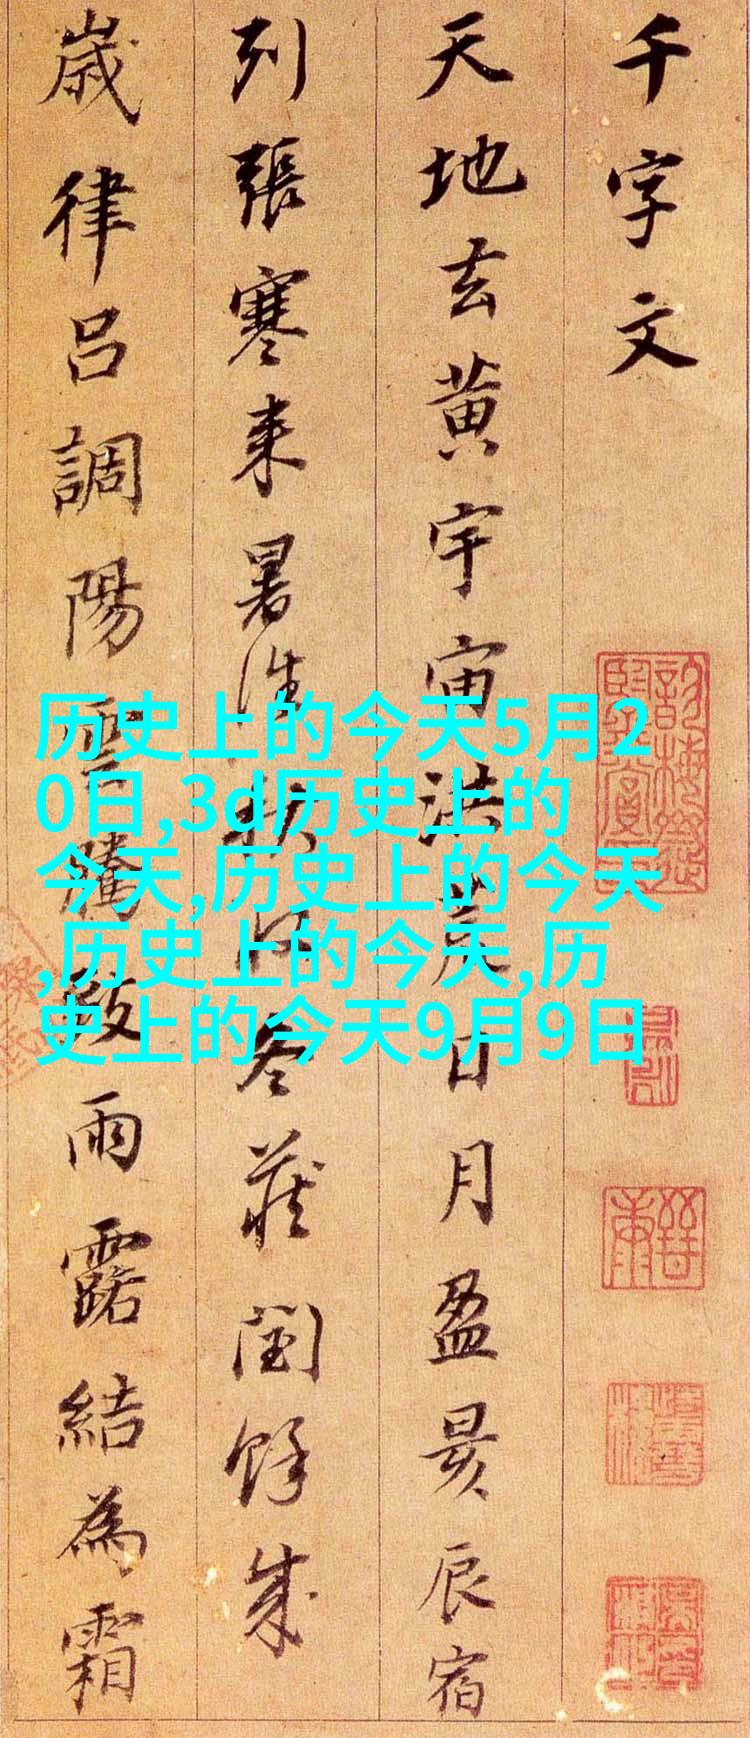 千字文
天地玄黄宇宙洪荒日月盈昃辰宿
列張寒来暑往秋收冬藏閏餘成
歲律呂調陽雲騰致雨露結為霜
历史上的今天5月2
0日,3d历史上的
今天,历史上的今天
,历史上的今天,历
史上的今天9月9日